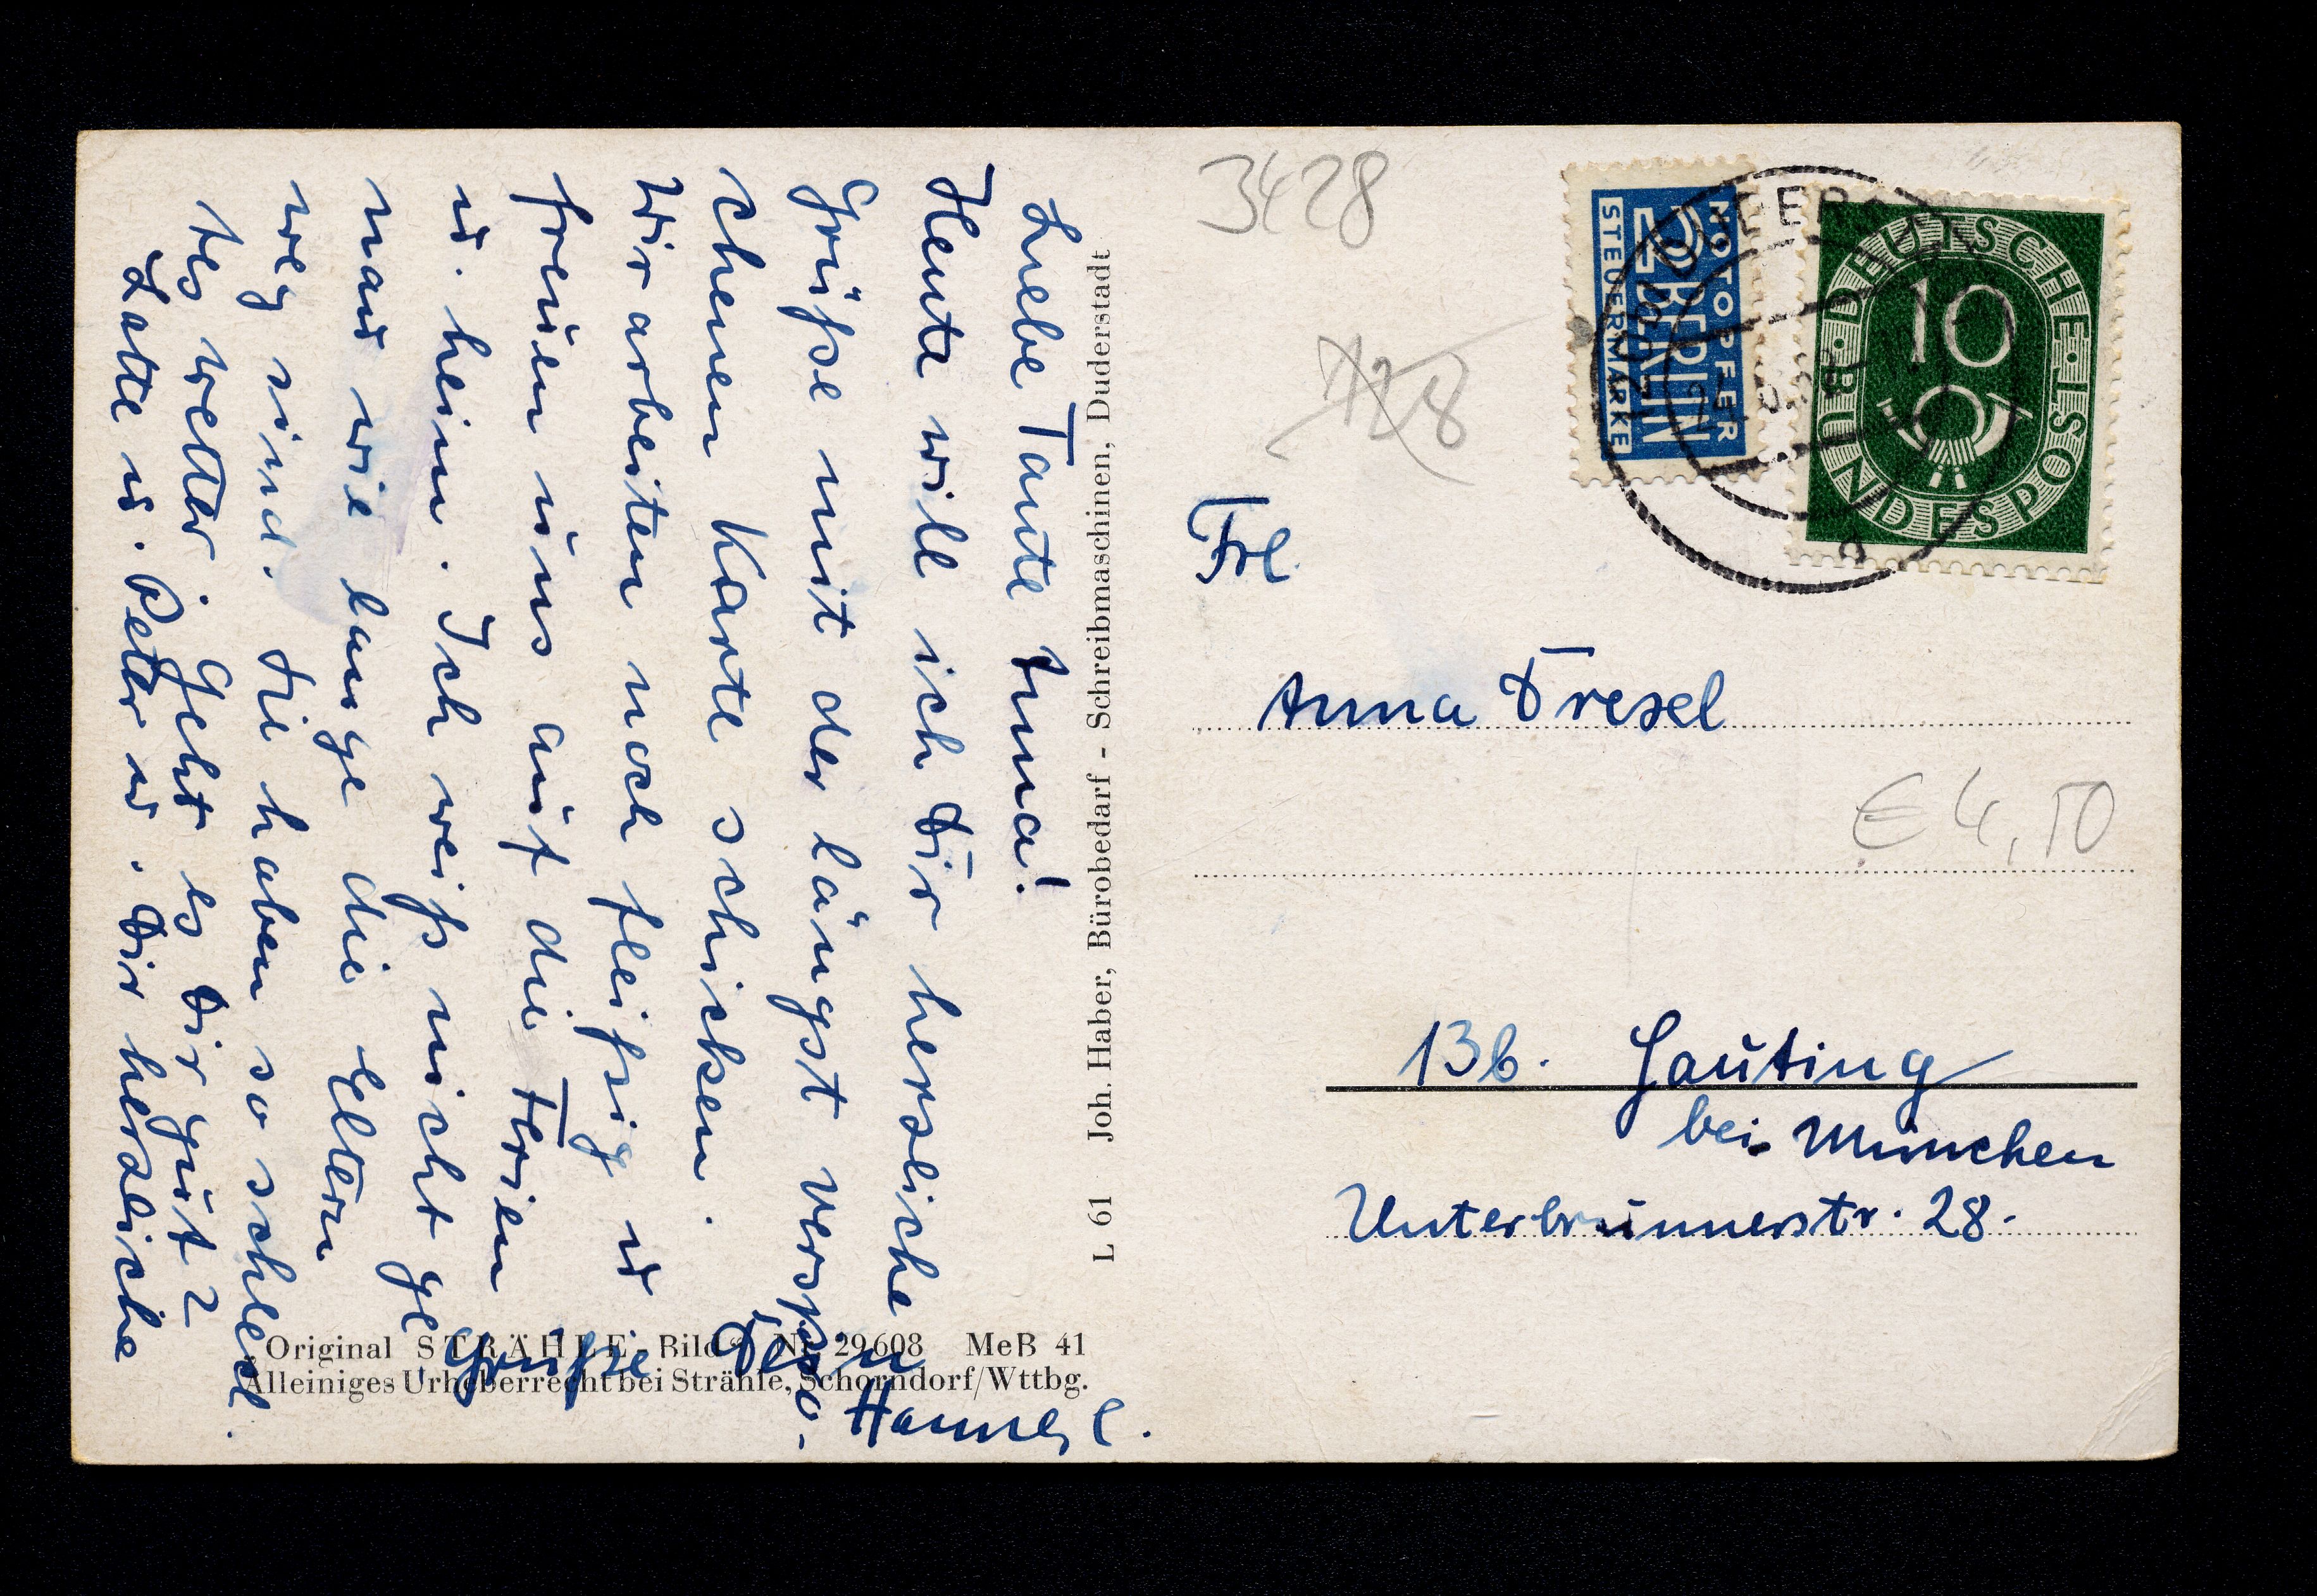 Liebe Tante Anna!
Heute will ich Dir herzliche
Grüße mit der längst verspro-
chenen Karte schicken.
Wir arbeiten noch fleißig u
freuen uns auf die Ferien
u. heim. Ich weiß nicht ge
nau wie lange die Eltern
weg sind. Sie haben so schlech
tes wetter. Geht es Dir gut?
Lotte u. Peter u. Dir herzliche
Grüße Dein
Hannesl.
L 61 Joh. Haber, Bürobedarf - Schreibmaschinen, Duderstadt
„Original STRÄHLE-Bild“ Nr. 29608 MeB 41
Alleiniges Urheberrecht bei Strähle, Schorndorf/Wttbg.
3428
128
NOTOPFER
2 BERLIN
STEUERMARKE
DEUTSCHE BUNDESPOST
10
Frl.
Anna Dresel
€ 4,50
13b. Gauting
bei München
Unterbrunnerstr. 28.